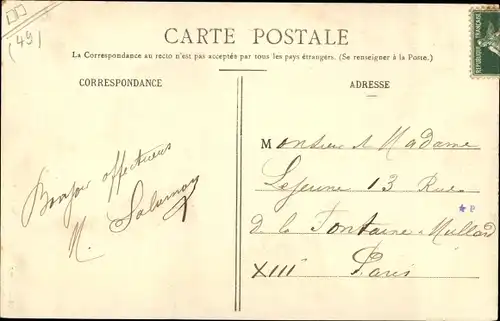 (49)
CARTE POSTALE
La Correspondance au recto n'est pas acceptée par tous les pays étrangers. (Se renseigner à la Poste.)
CORRESPONDANCE
ADRESSE
Bonjour affectueux
M.
Monsieur et Madame
Lejeune 13 Rue
de la Fontaine à Mulard
XIII Paris